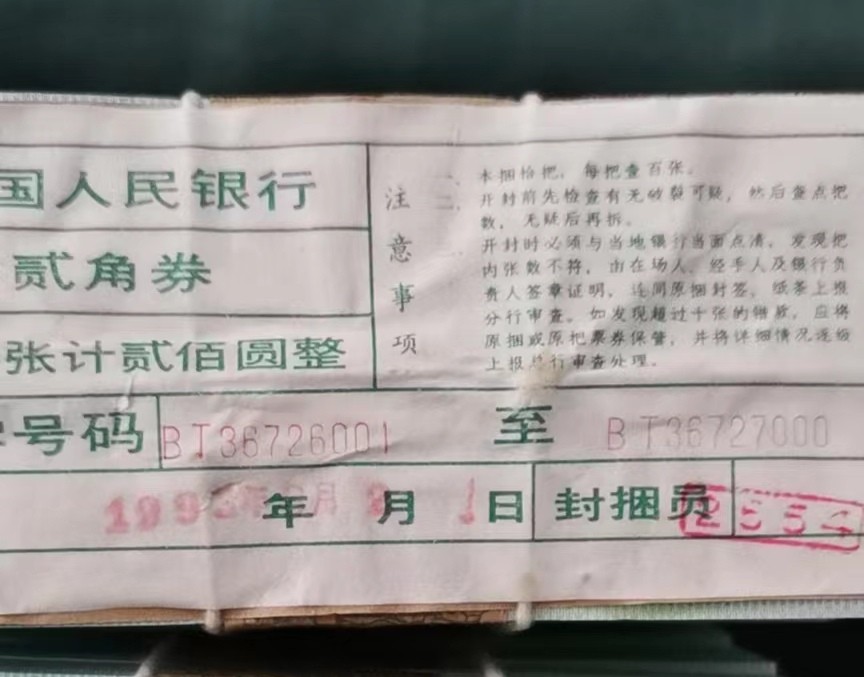 国人民银行
贰角券
张计贰佰圆整
号码 BT36726001 至 BT36727000
年 月 1日 封捆员 2554
注意事项
一 本捆拾把，每把查百张。
二 开封前先检查有无破裂可疑，然后查点把
数，无疑后再拆。
开封时必须与当地银行当面点清，发现把
内张数不符，由在场人、经手人及银行负
责人签章证明，连同原捆封签，纸条上报
分行审查。如发现超过十张的错款，应将
原捆或原把票券保管，并将详细情况逐级
上报总行审查处理。